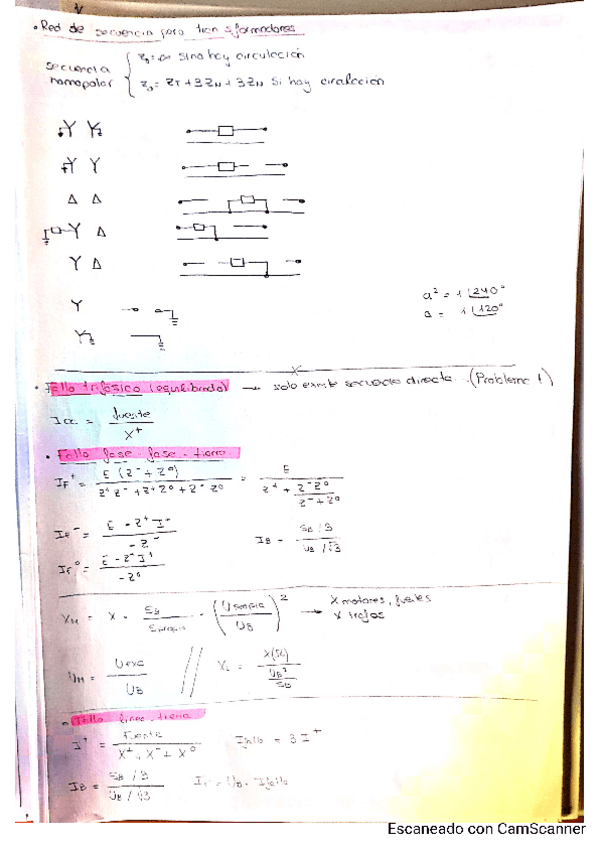 • Red de secuencia para transformadores
secuencia homopolar { Z₀=∞ si no hay circulación
Z₀= ZT+3ZN+3ZN si hay circulación
Y Y
Y Y
Δ Δ
Y Δ
Y Δ
Y
Y
a² = 1∠240°
a = 1∠120°
• Fallo trifásico (equilibrado) → solo existe secuencia directa. (Problema 1)
Icc = fuente / X⁺
• Fallo fase-fase-tierra
IF⁺ = E (Z⁻+Z⁰) / Z⁺Z⁻+Z⁺Z⁰+Z⁻Z⁰ = E / Z⁺ + Z⁻Z⁰ / Z⁻+Z⁰
IF⁻ = E - Z⁺I⁺ / -Z⁻
IB = SB/3 / UB/√3
IF⁰ = E - Z⁺I⁺ / -Z⁰
XM = X · SB / Spropia · (Upropia / UB)² → X motores, fuentes
X trafos
UM = Uexc / UB // XL = X(Ω) / UB² / SB
• Fallo línea-tierra
I⁺ = fuente / X⁺+X⁻+X⁰ Ifallo = 3I⁺
IB = SB/3 / UB/√3
Escaneado con CamScanner